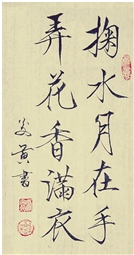 掬水月在手
弄花香滿衣
黄書